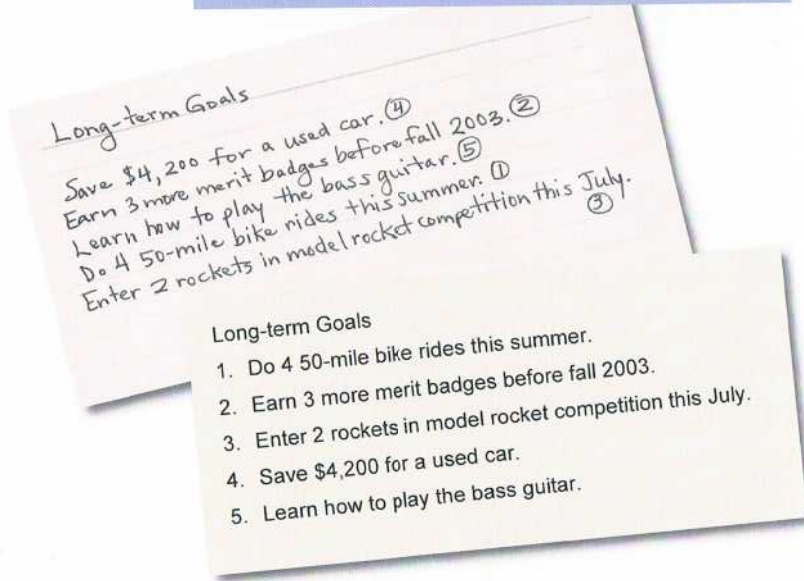 Long-term Goals
Save $4,200 for a used car. ④
Earn 3 more merit badges before fall 2003. ②
Learn how to play the bass guitar. ⑤
Do 4 50-mile bike rides this summer. ①
Enter 2 rockets in model rocket competition this July.
③
Long-term Goals
1. Do 4 50-mile bike rides this summer.
2. Earn 3 more merit badges before fall 2003.
3. Enter 2 rockets in model rocket competition this July.
4. Save $4,200 for a used car.
5. Learn how to play the bass guitar.